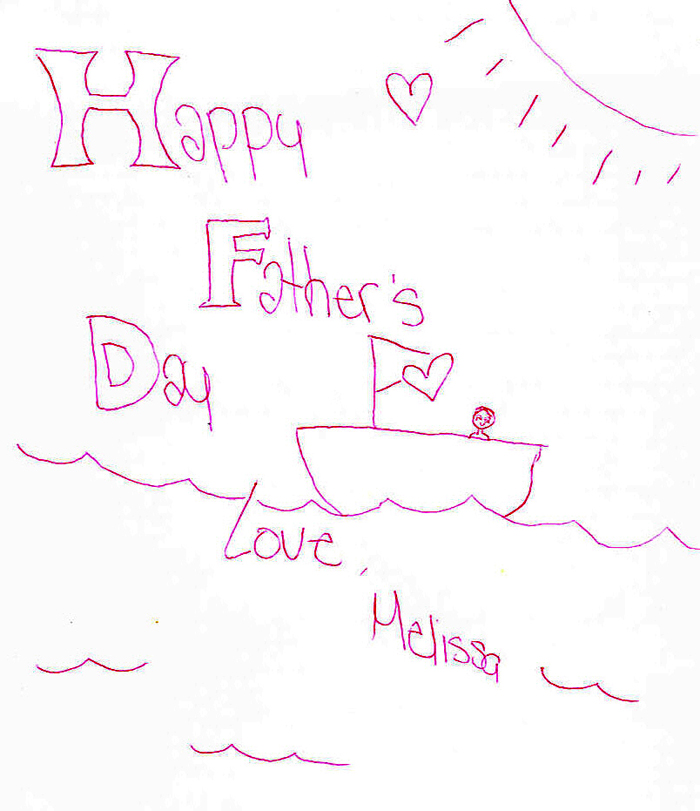 Happy
Father's
Day
Love,
Melissa